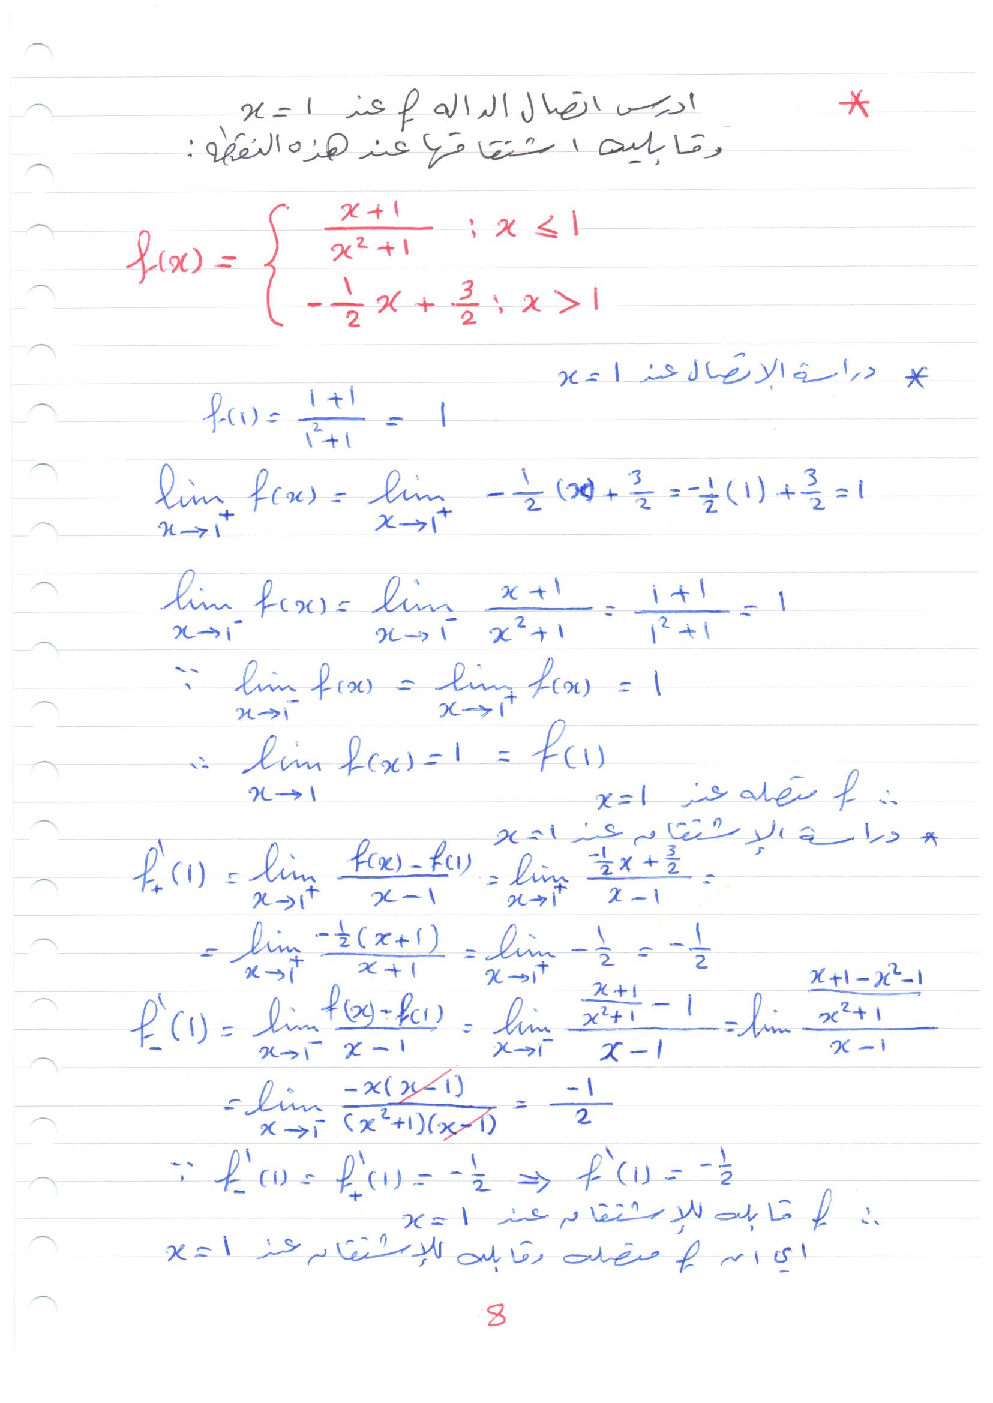 * ادرس اتصال الداله f عند x = 1
وقابليه اشتقاقها عند هذه النقطه :
f(x) = { (x+1)/(x²+1) ; x ≤ 1
-1/2 x + 3/2 ; x > 1
* دراسة الإتصال عند x = 1
f(1) = (1+1)/(1²+1) = 1
lim x→1⁺ f(x) = lim x→1⁺ -1/2 (x) + 3/2 = -1/2 (1) + 3/2 = 1
lim x→1⁻ f(x) = lim x→1⁻ (x+1)/(x²+1) = (1+1)/(1²+1) = 1
∵ lim x→1⁻ f(x) = lim x→1⁺ f(x) = 1
∴ lim x→1 f(x) = 1 = f(1)
∴ f متصله عند x=1
* دراسة الإشتقاق عند x=1
f₊'(1) = lim x→1⁺ (f(x) - f(1))/(x-1) = lim x→1⁺ (-1/2 x + 3/2)/(x-1) =
= lim x→1⁺ (-1/2 (x+1))/(x+1) = lim x→1⁺ -1/2 = -1/2
f₋'(1) = lim x→1⁻ (f(x) - f(1))/(x-1) = lim x→1⁻ ((x+1)/(x²+1) - 1)/(x-1) = lim ((x+1-x²-1)/(x²+1))/(x-1)
= lim x→1⁻ (-x(x-1))/((x²+1)(x-1)) = -1/2
∵ f₋'(1) = f₊'(1) = -1/2 ⇒ f'(1) = -1/2
∴ f قابله للإشتقاق عند x = 1
اي ان f متصله وقابله للإشتقاق عند x = 1
8